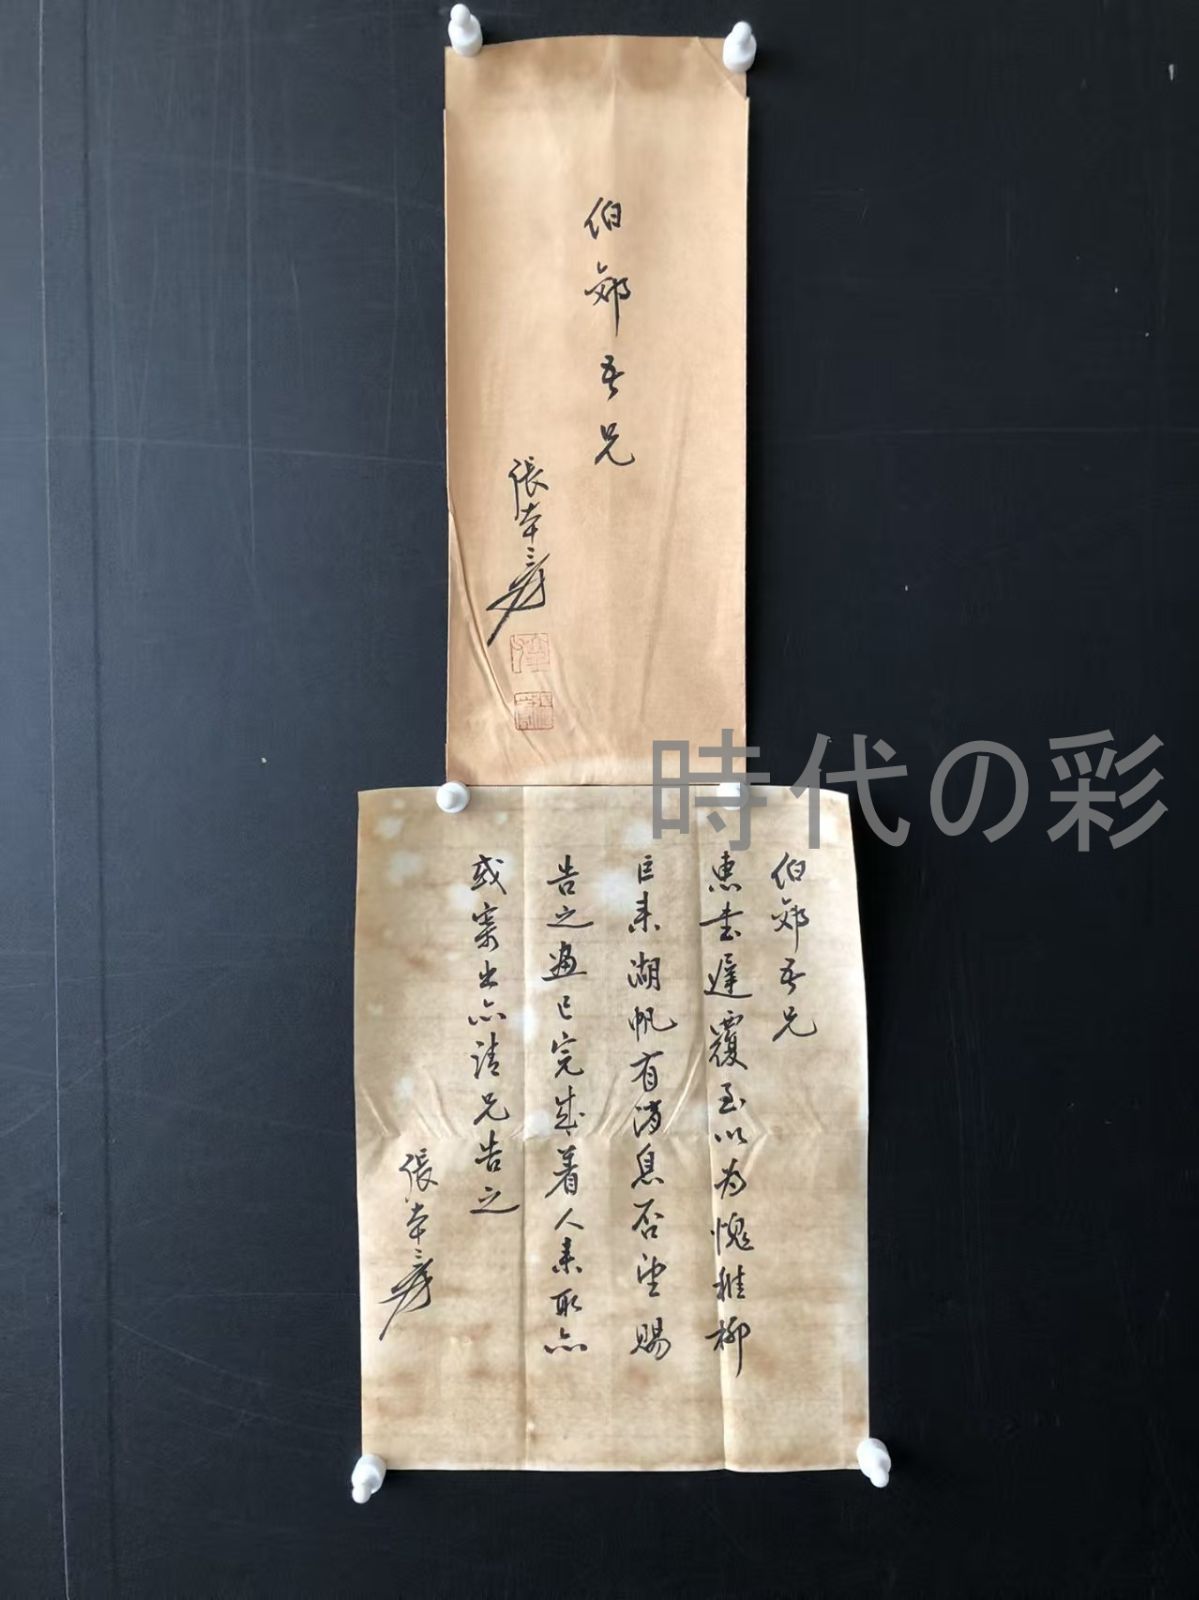 伯郊吾兄
張大千
時代の彩
伯郊吾兄
惠書遲覆至以为愧稚柳
已来湖帆有消息否望賜
告之画已完成着人来取亦
或寄出亦请兄告之
張大千